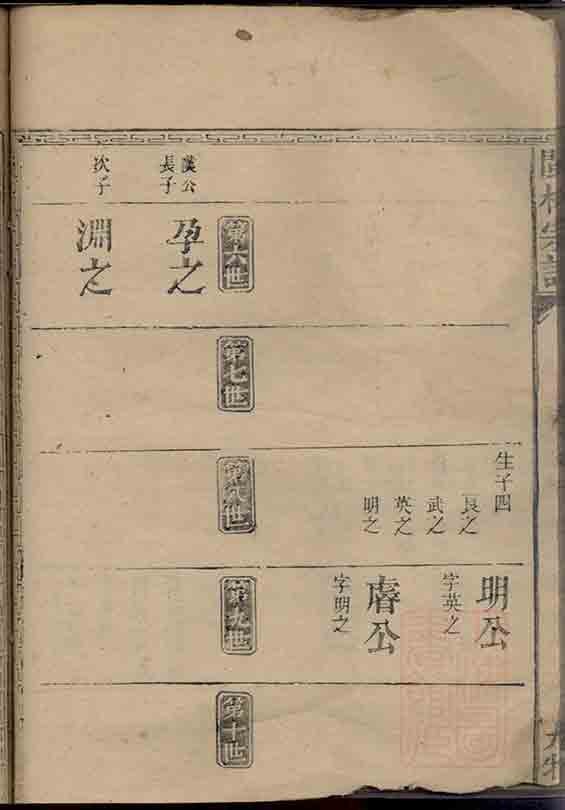 生子四
良之
武之
英之
明之
明公
字英之
睿公
字明之
第六世
第七世
第八世
第九世
第十世
長子
孕之
次子
淵之